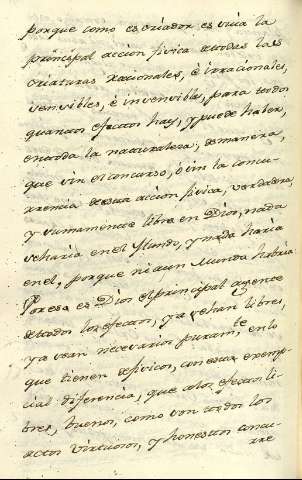 porque como es criador es vicia la
principal accion fisica de todas las
criaturas racionales, è irracionales,
vensibles, è invensibles, para todos
quantos efectos hay, y puede haber,
en toda la naturaleza; de manera,
que sin el concurso, ò sin la concu-
rrencia de esta accion fisica, verdadera,
y sumamente libre en Dios, nada
se haria en el Mundo, y nada haria
en el, porque ni aun Mundo habria
Por esa es Dios el principal agente
de todos los efectos, y a se han libres,
y a sean necesarios puram.te, en lo
que tienen de fisicos, con esta exemp-
cial diferencia, que a los efectos li-
bres, buenos, como son todos los
actos virtuosos, y honestos concu-
rre